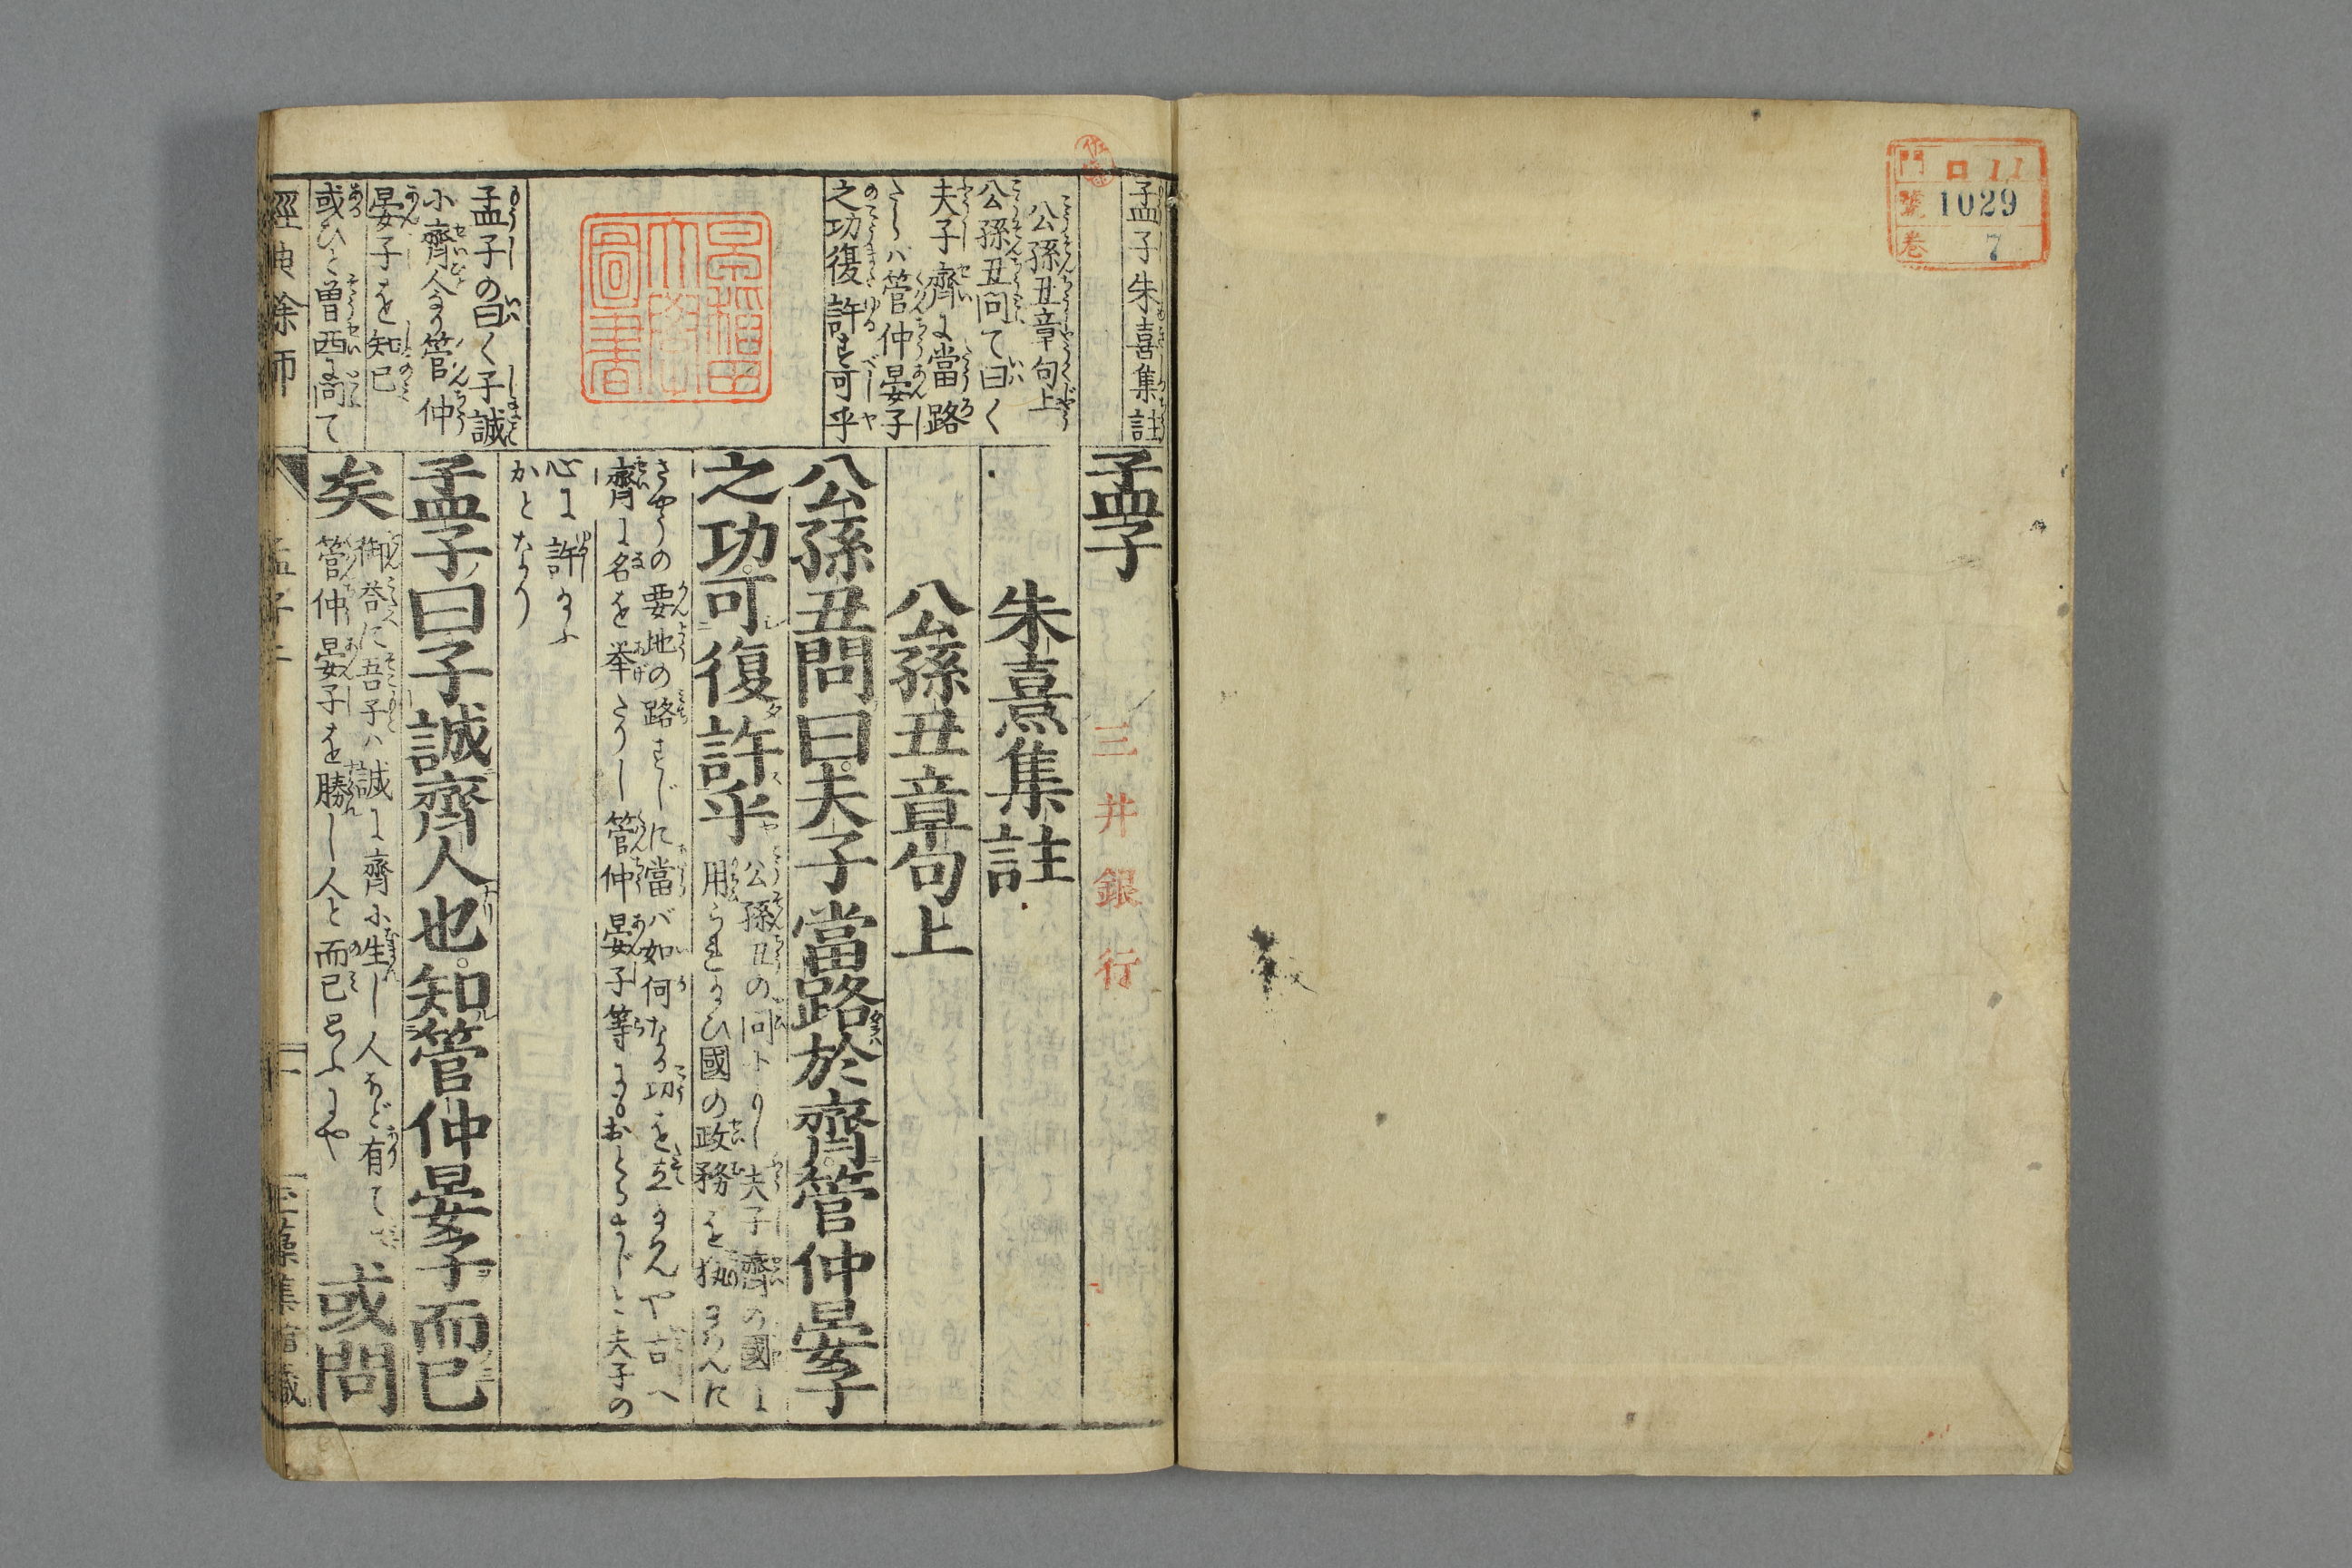 門 ロ11
號 1029
巻 7
佐
孟子朱熹集註
公孫丑章句上
公孫丑問て曰く
夫子齊に當路
たらバ管仲晏子
之功復許す可乎
早稲田
大學
圖書
孟子の曰く子誠
に齊人なり管仲
晏子を知已
或ひと曽西に問て
經典餘師
孟子
三井銀行
朱熹集註
公孫丑章句上
公孫丑問曰夫子當路於齊管仲晏子
之功可復許乎
公孫丑の問
夫子齊の國に
用
國の政務を執
さやうの要地の路すじに當バ如何なる功を立
や言ヘ
齊に名を挙たりし管仲晏子等にもおとらまじと夫子の
心に許
かとなり
孟子曰子誠齊人也知管仲晏子而已
矣
御荅に吾子ハ誠に齊に生し人ほど有て
管仲晏子を勝し人と而已
或問
孟子二
集舘藏